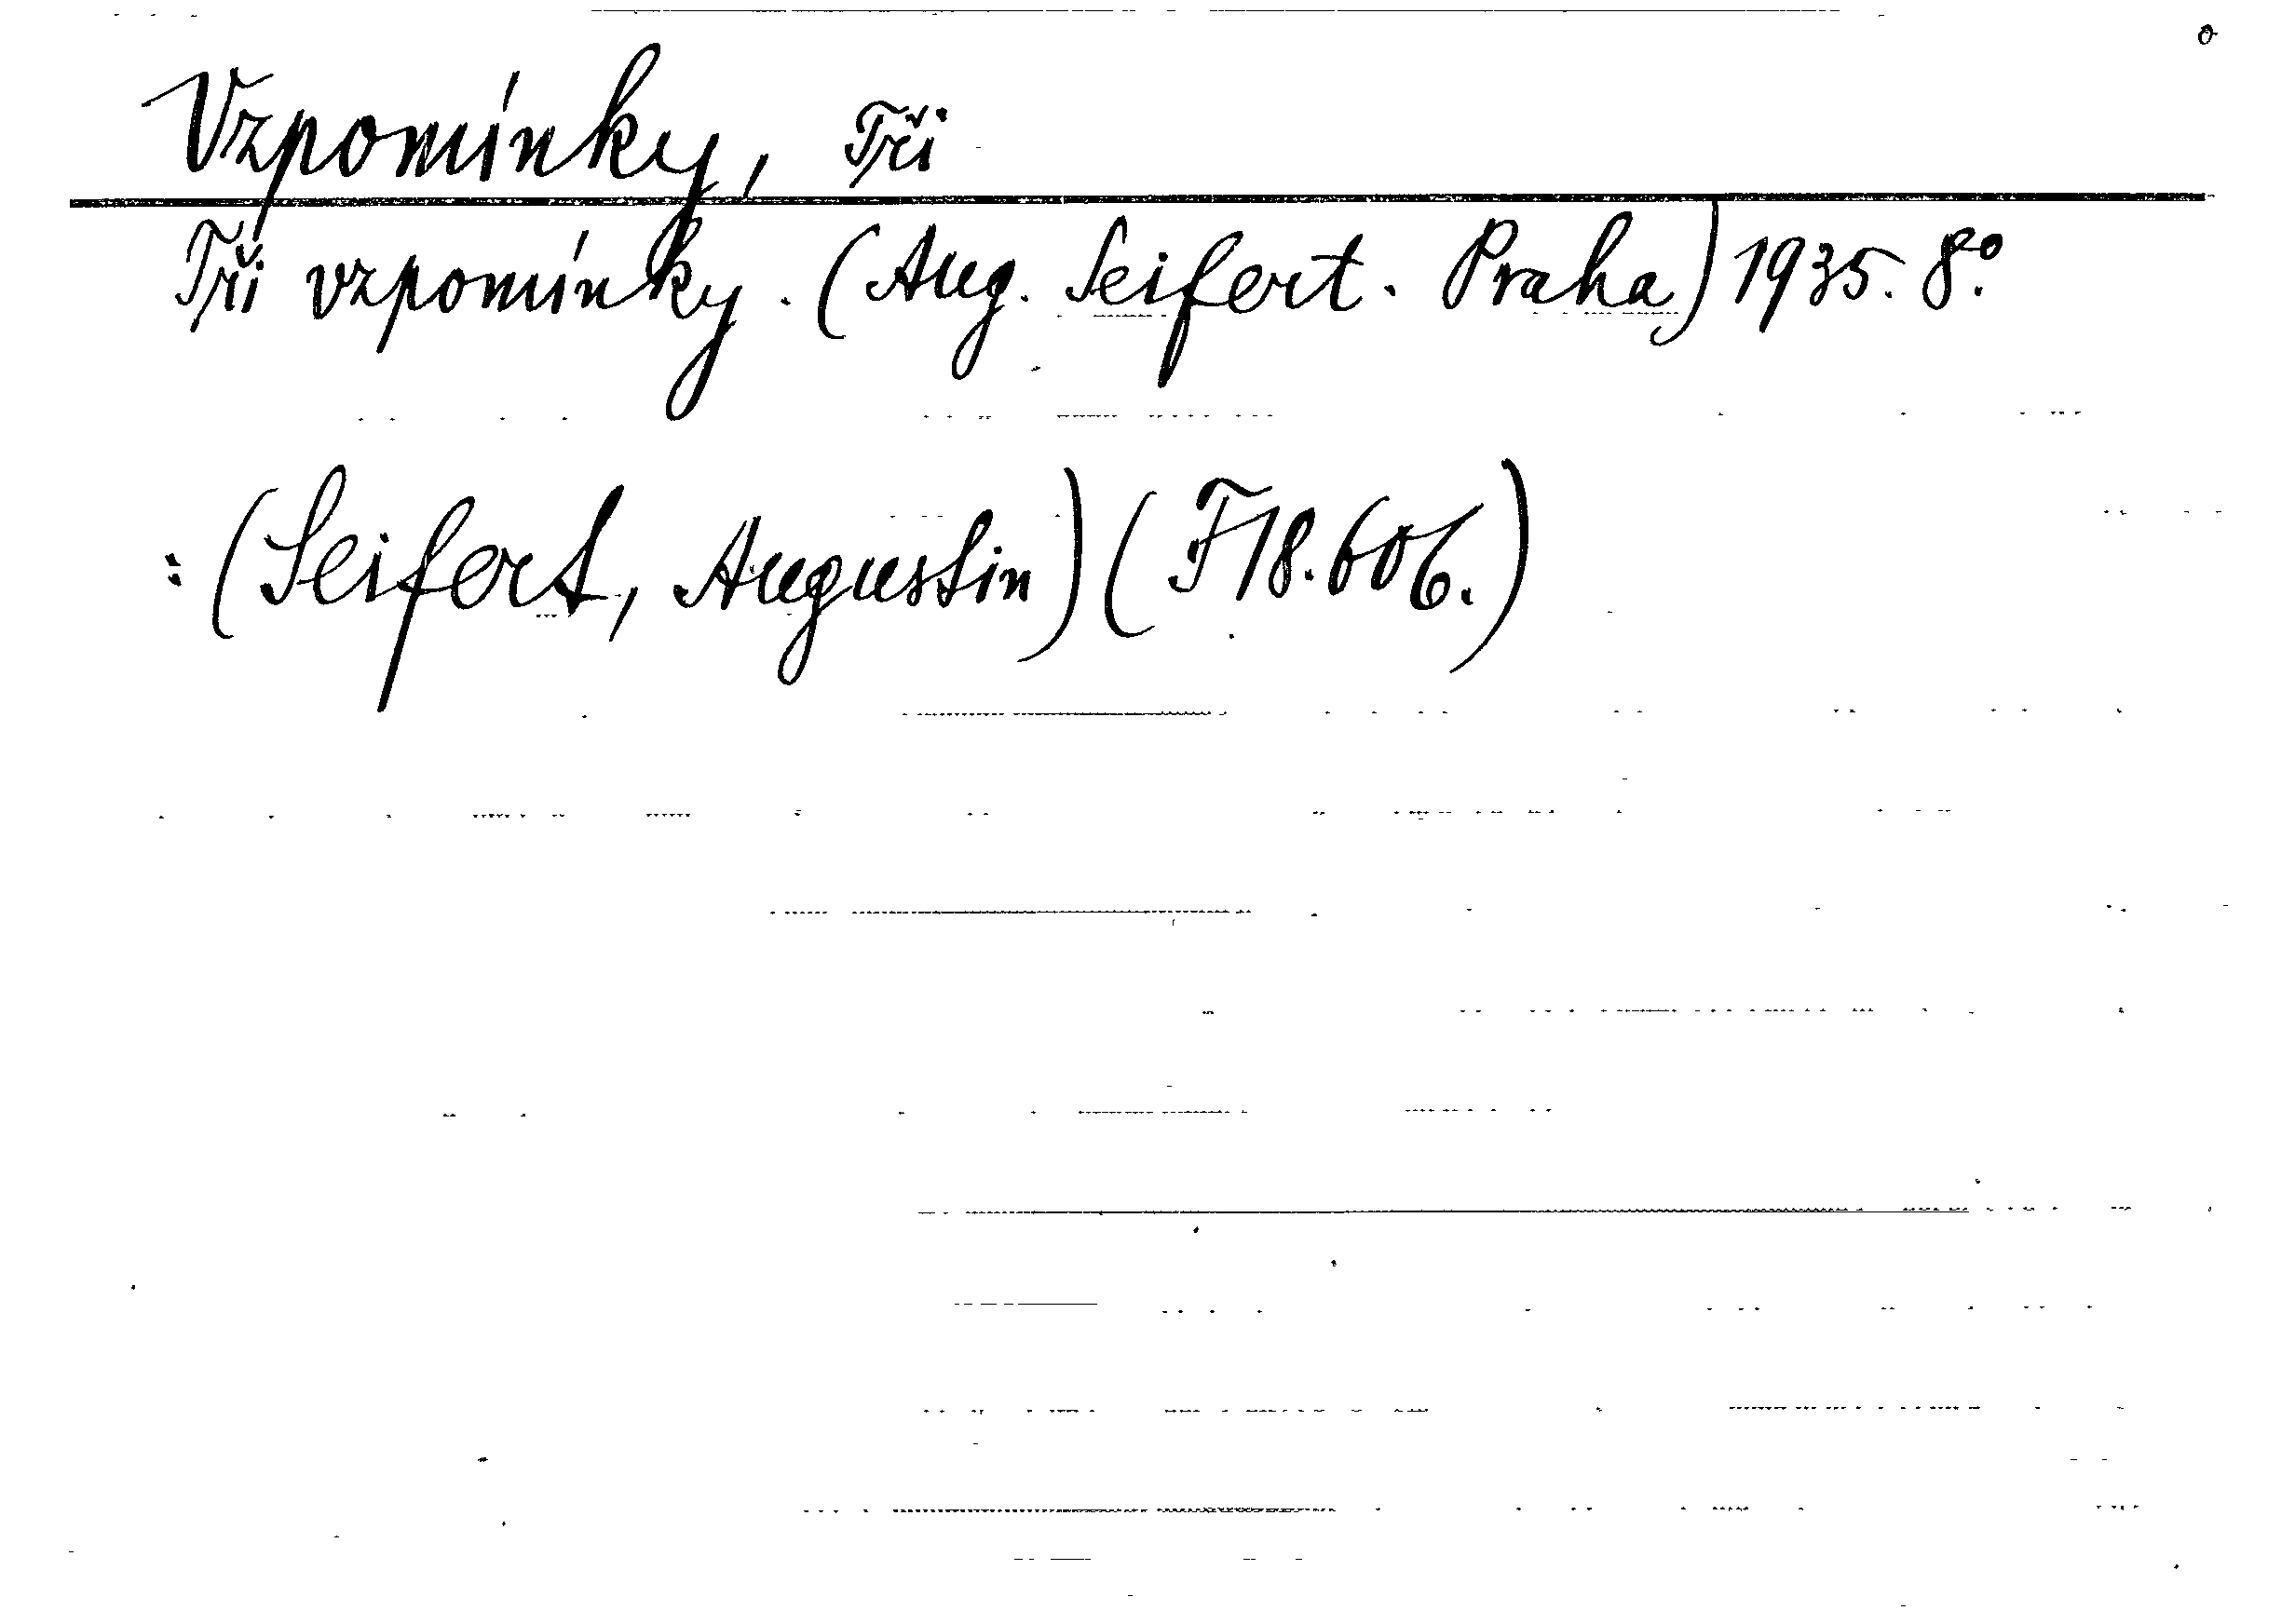 o
Vzpomínky, Tři
Tři vzpomínky. (Aug. Seifert. Praha) 1935. 8º.
: (Seifert, Augustin) (F18.606.)